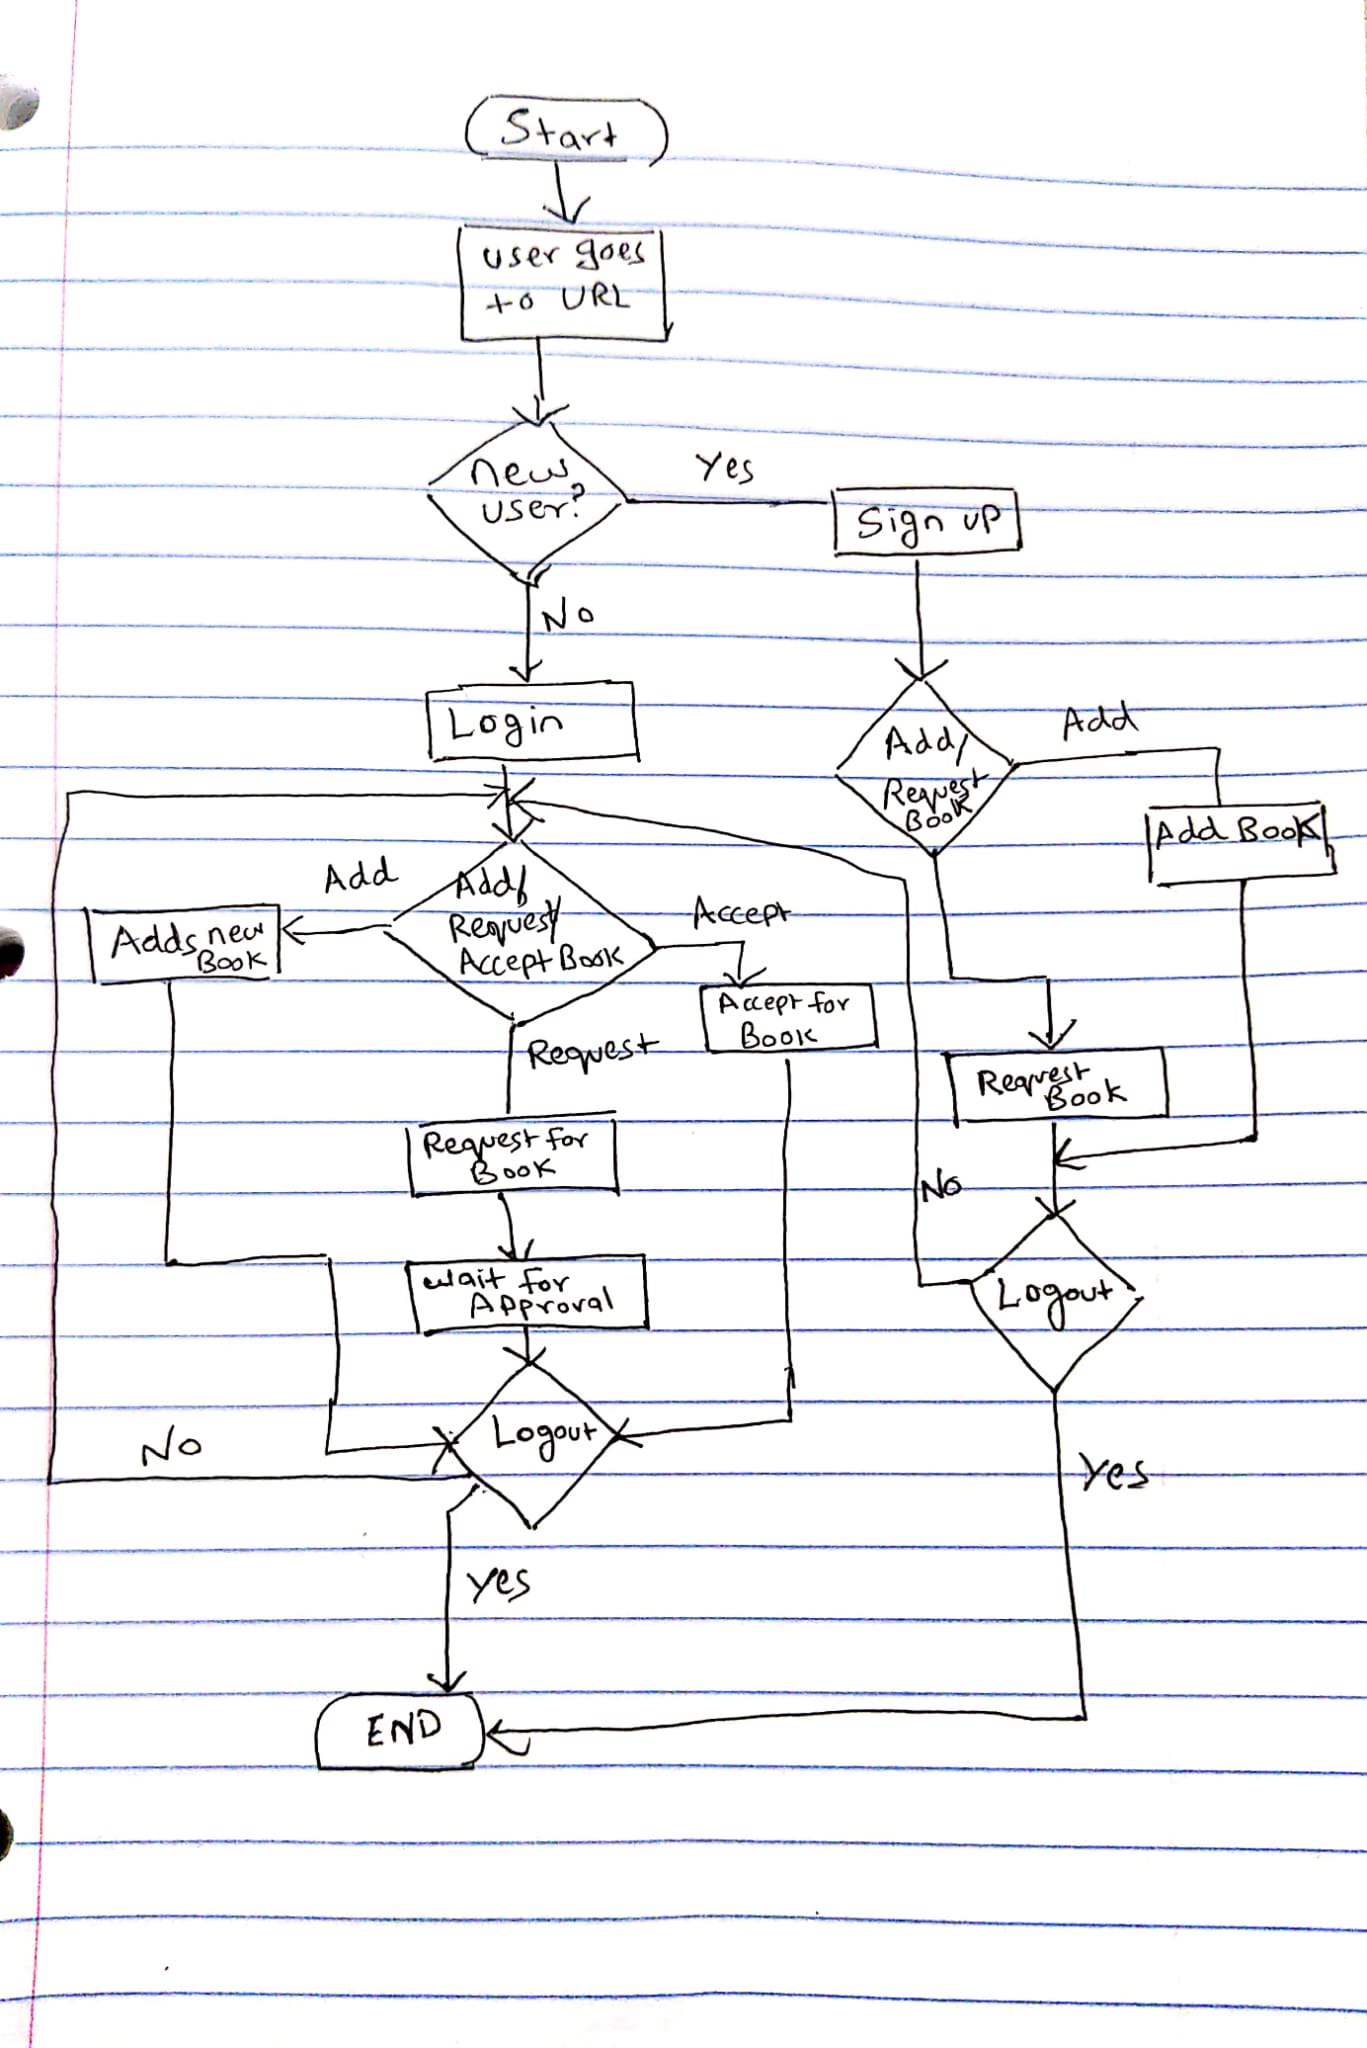 Start
user goes
to URL
new
user?
Yes
Sign up
No
Login
Add/
Request
Book
Add
Add Book
Add
Add/
Request/
Accept Book
Accept
Adds new
Book
Accept for
Book
Request
Request
Book
Request for
Book
No
wait for
Approval
Logout
Logout
No
Yes
yes
END